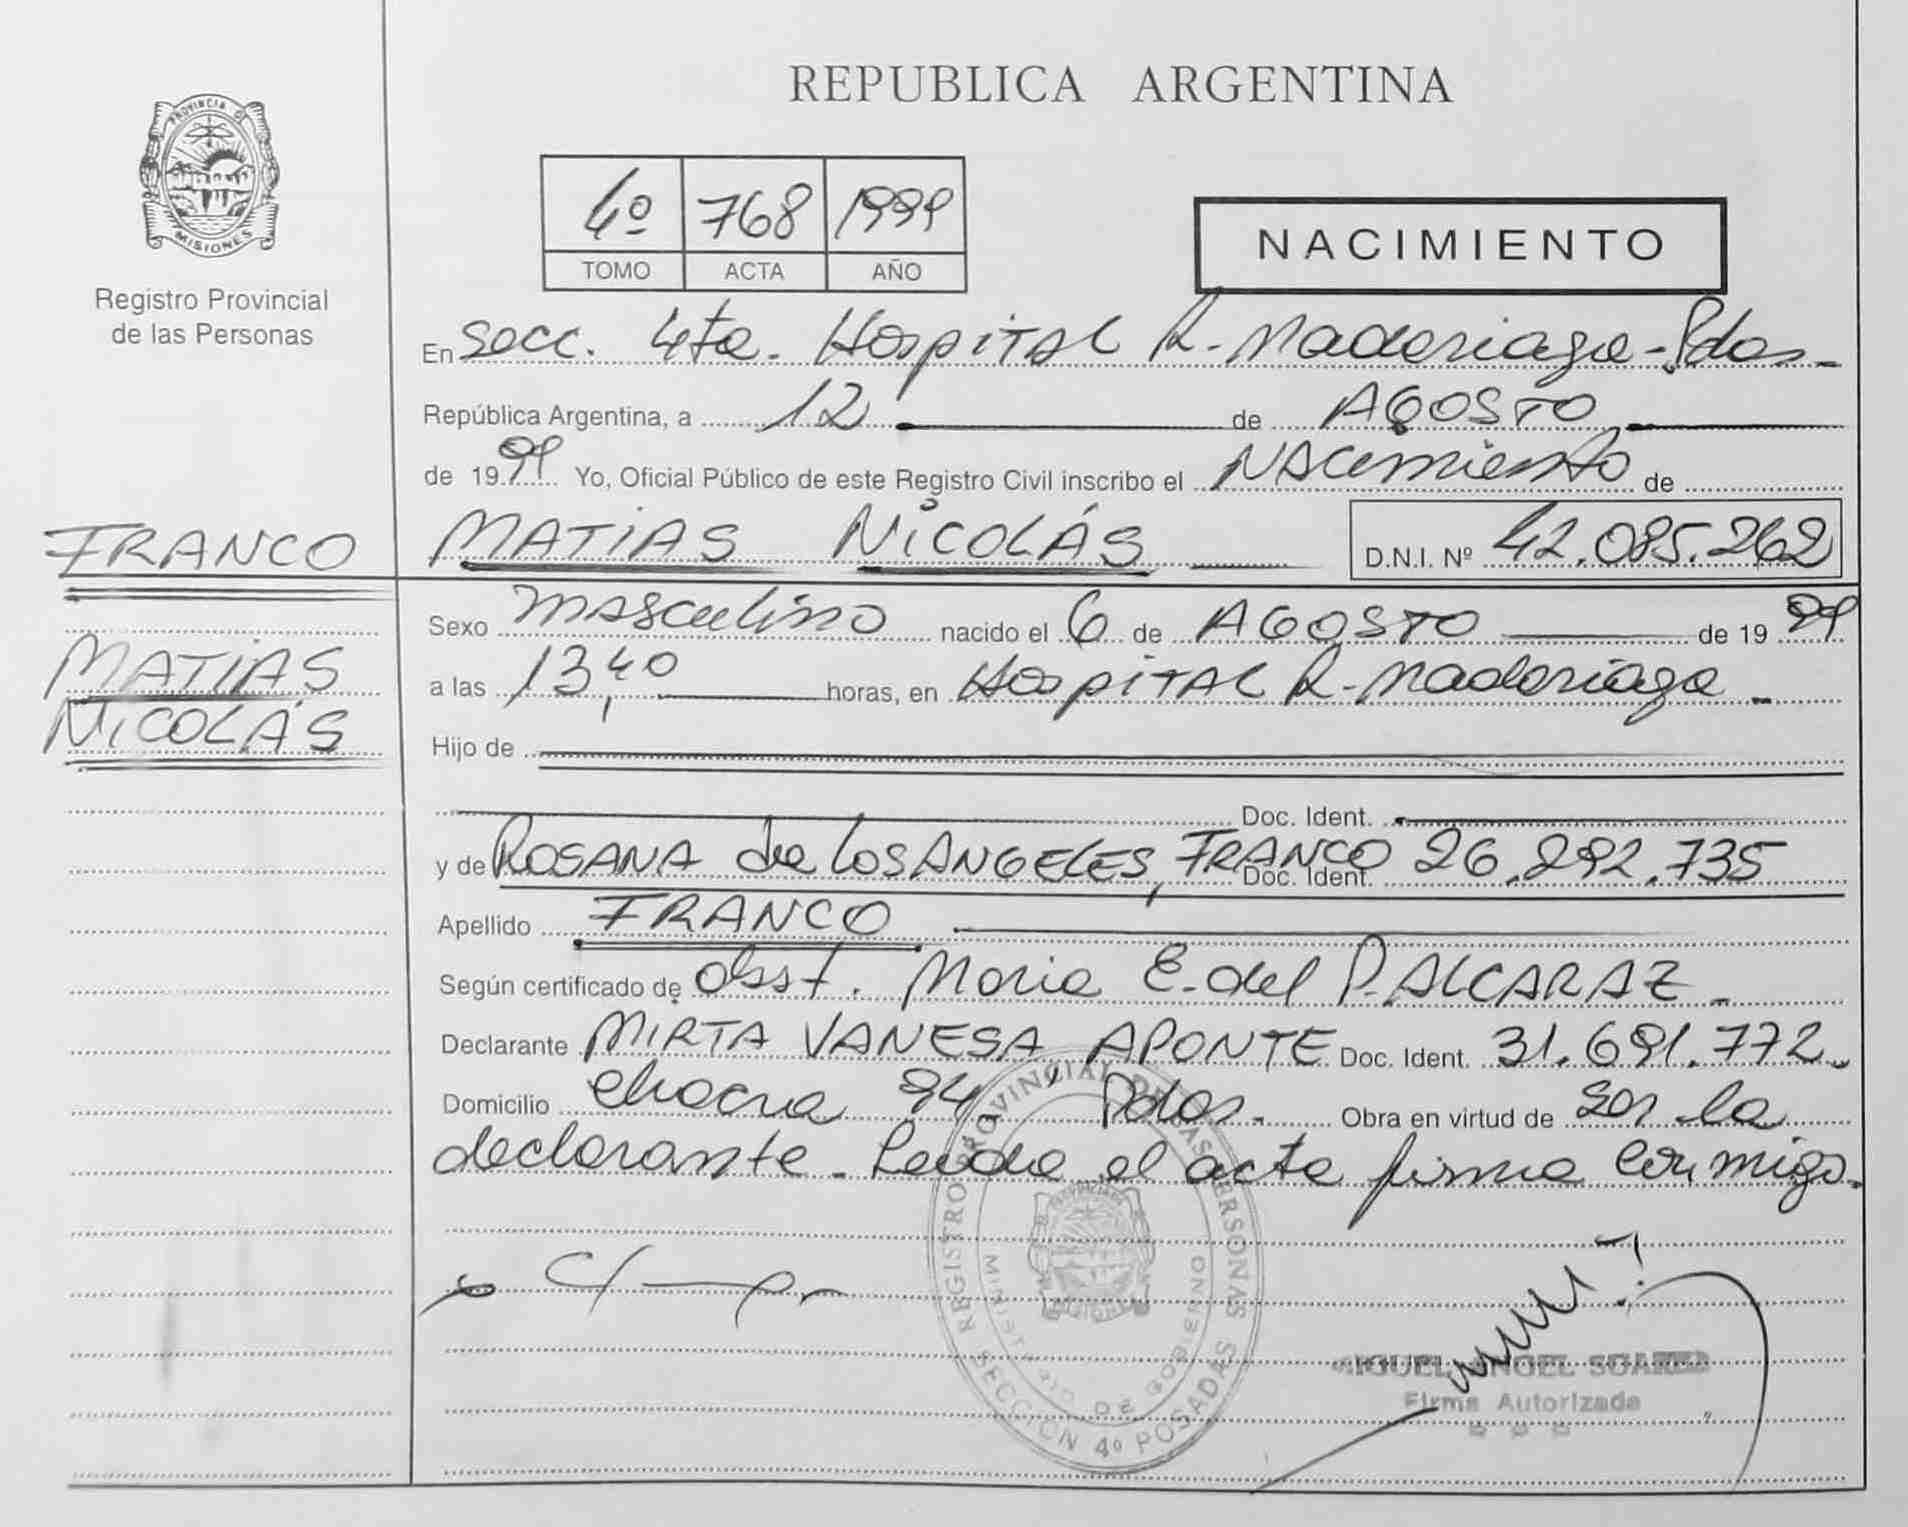 REPUBLICA ARGENTINA
PROVINCIA DE
MISIONES
Registro Provincial
de las Personas
4º 768 1999
TOMO ACTA AÑO
NACIMIENTO
En Secc. 4ta. Hospital R. Madariaga - Pdas -
República Argentina, a 12 de AGOSTO
de 1999 Yo, Oficial Público de este Registro Civil inscribo el NACimiento de
FRANCO
MATIAS
NICOLÁS
MATIAS NICOLÁS D.N.I. Nº 42.085.262
Sexo masculino nacido el 6 de AGOSTO de 1999
a las 13,40 horas, en Hospital R. Madariaga -
Hijo de
Doc. Ident.
y de ROSANA de LOS ANGELES, FRANCO Doc. Ident. 26.292.735
Apellido FRANCO
Según certificado de Obst. Maria E. del P. ALCARAZ -
Declarante MIRTA VANESA APONTE Doc. Ident. 31.691.772
Domicilio chacra 94, Pdas. Obra en virtud de ser la
declarante - Leida el acta firma conmigo.
REGISTRO PROVINCIAL DE LAS PERSONAS
MINISTERIO DE GOBIERNO
SECCION 4º POSADAS
MIGUEL ANGEL SUAREZ
Firma Autorizada